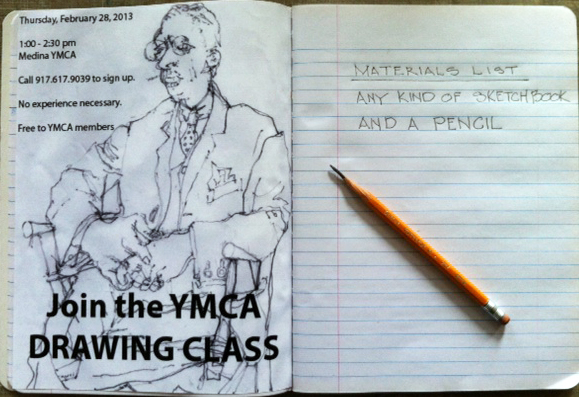 Thursday, February 28, 2013
1:00 - 2:30 pm
Medina YMCA
Call 917.617.9039 to sign up.
No experience necessary.
Free to YMCA members
Join the YMCA
DRAWING CLASS
MATERIALS LIST
ANY KIND OF SKETCHBOOK
AND A PENCIL